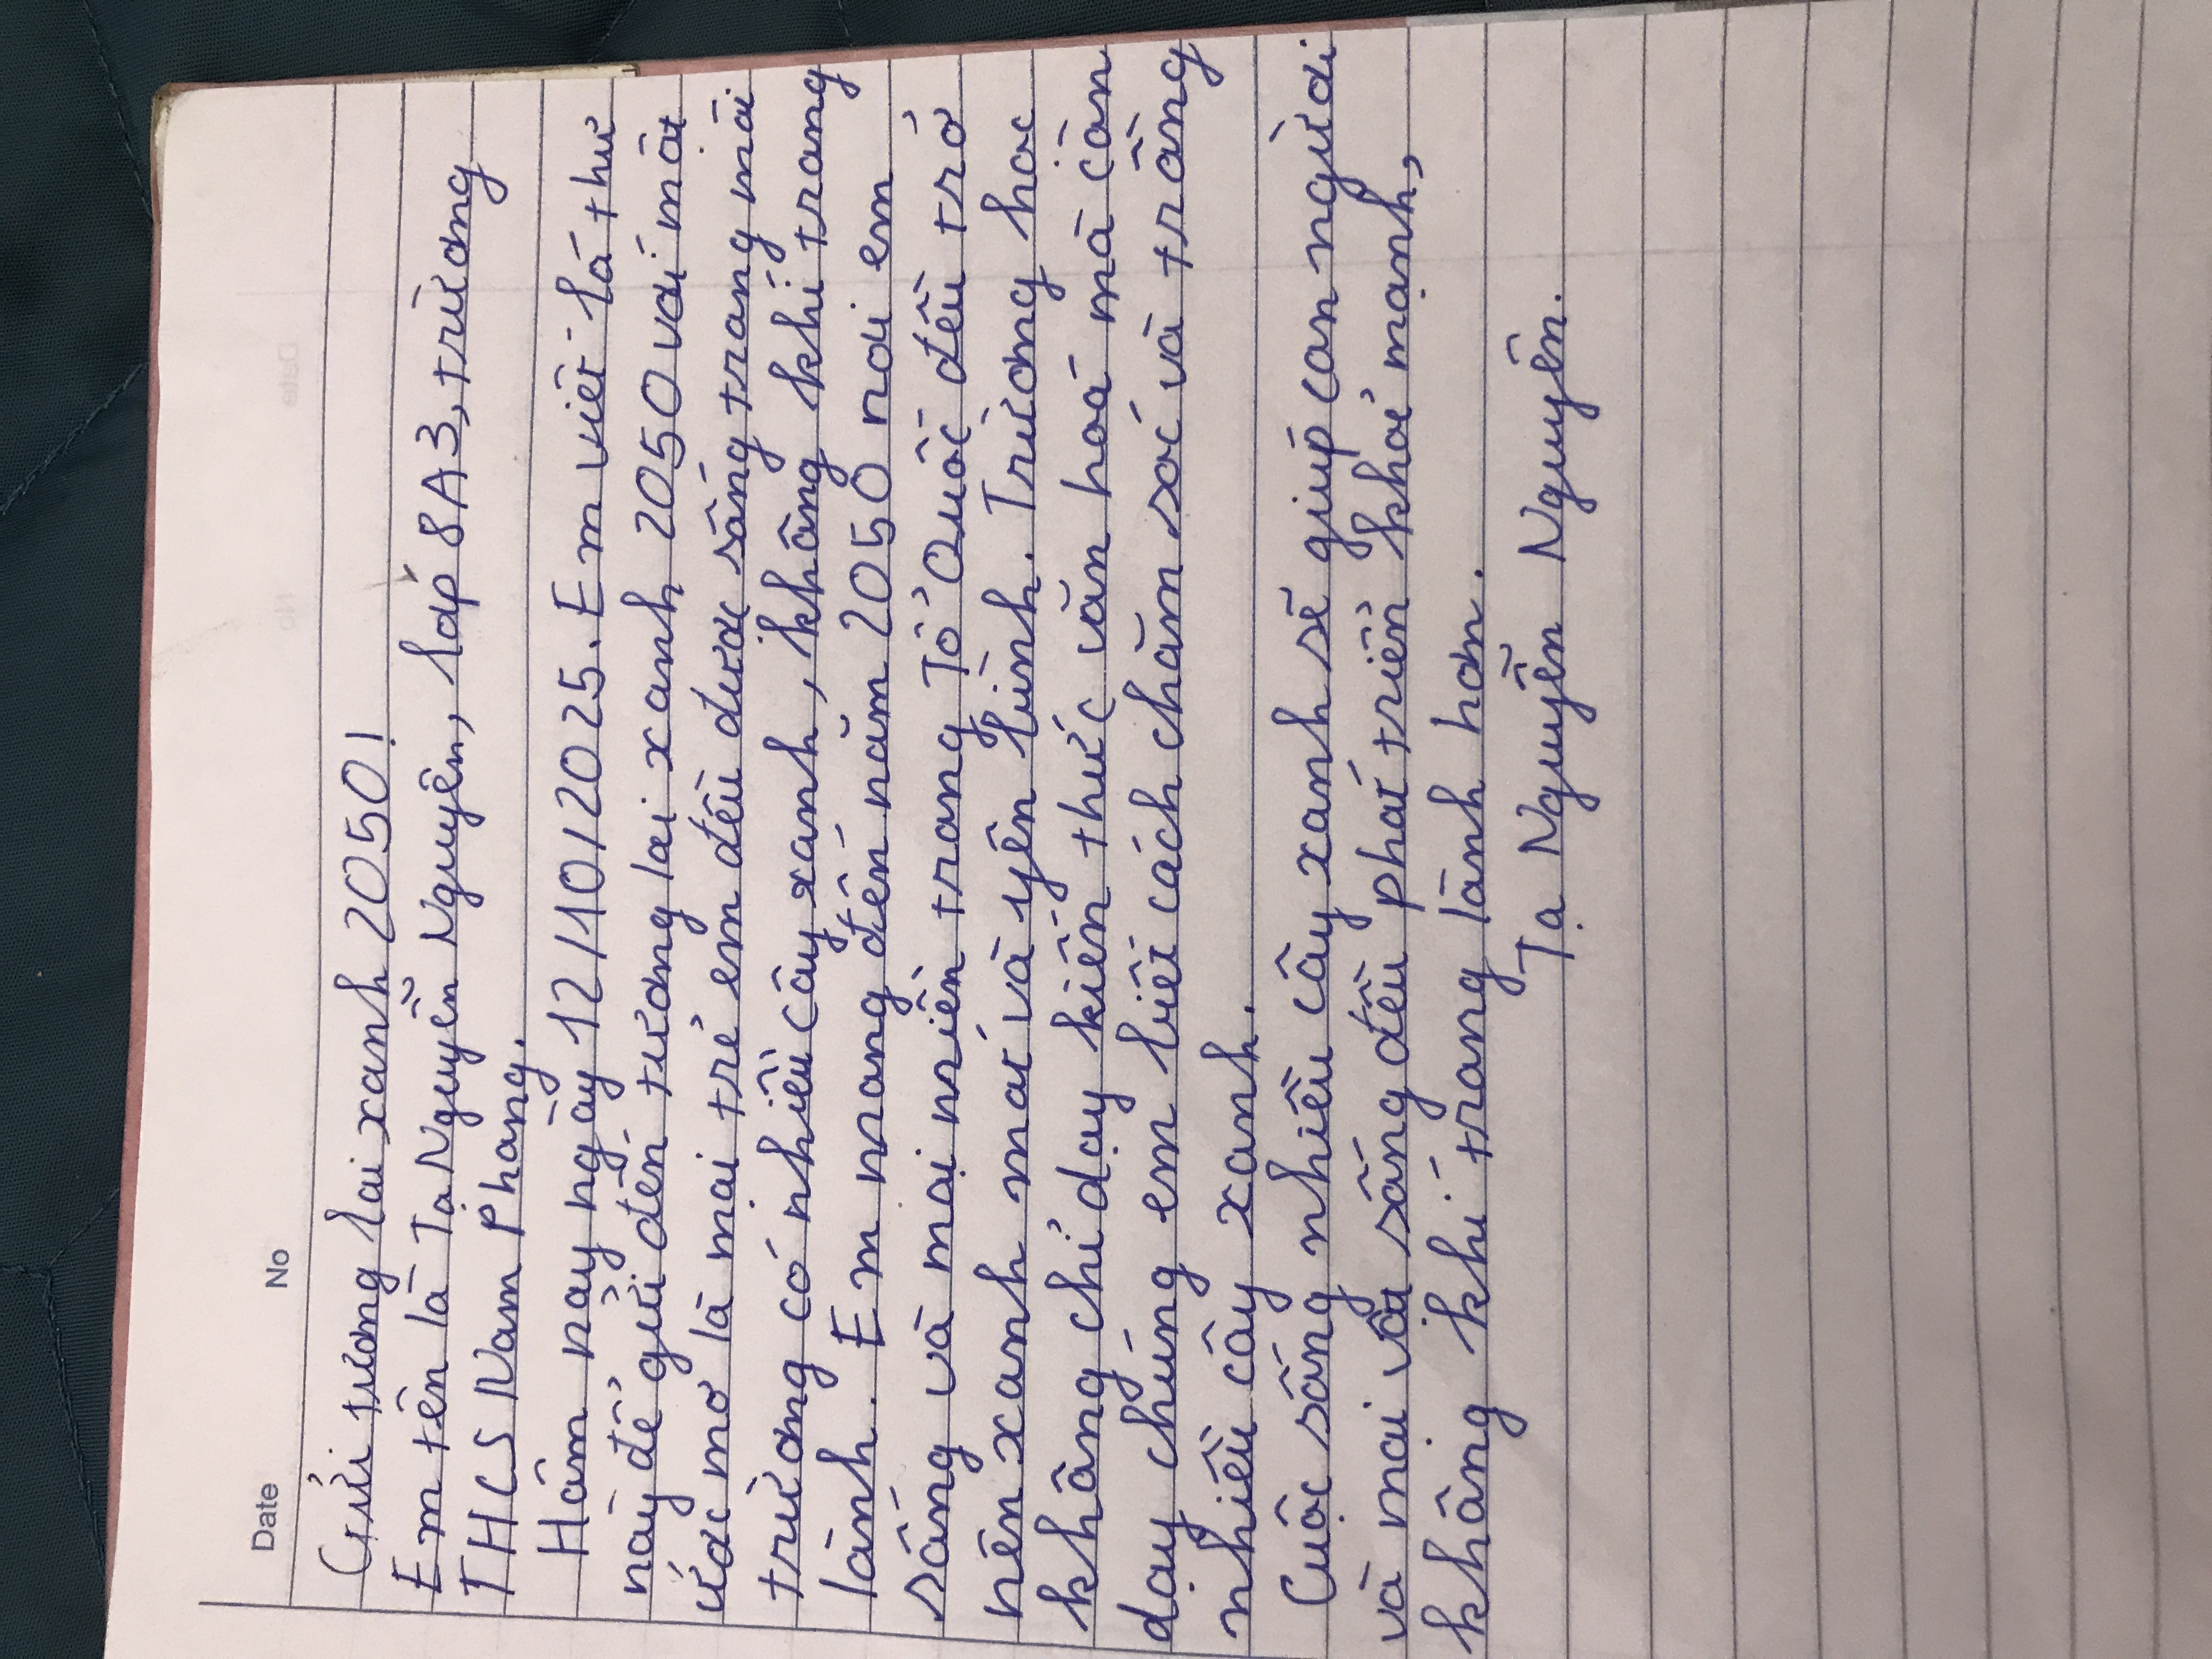 Date No
Gửi tương lai xanh 2050!
Em tên là Tạ Nguyễn Nguyên, lớp 8A3, trường
THCS Nam Phong.
Hôm nay ngày 12/10/2025. Em viết lá thư
này để gửi đến tương lai xanh 2050 với một
ước mơ là mọi trẻ em đều được sống trong môi
trường có nhiều cây xanh, không khí trong
lành. Em mong đến năm 2050 nơi em
sống và mọi miền trong Tổ Quốc đều trở
nên xanh mát và yên bình. Trường học
không chỉ dạy kiến thức văn hoá mà còn
dạy chúng em biết cách chăm sóc và trồng
nhiều cây xanh.
Cuộc sống nhiều cây xanh sẽ giúp con người
và mọi vật sống đều phát triển khoẻ mạnh,
không khí trong lành hơn.
Tạ Nguyễn Nguyên.